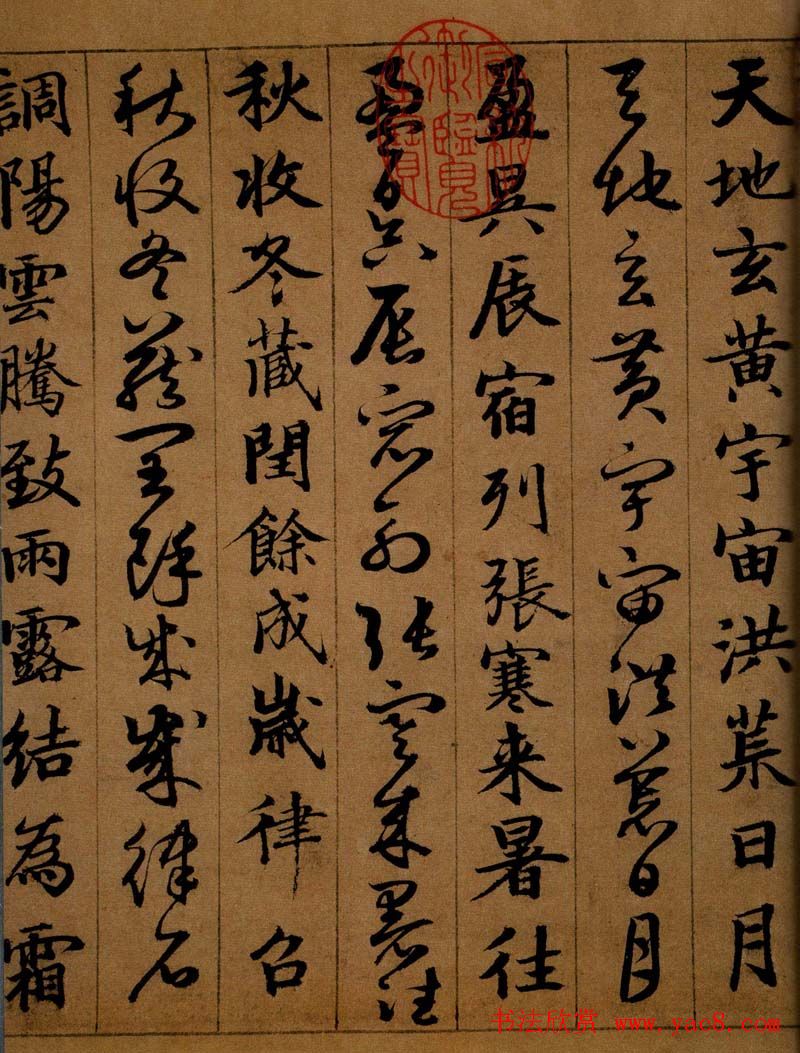 天地玄黃宇宙洪荒日月
天地玄黃宇宙洪荒日月
盈昃辰宿列張寒来暑往
盈昃辰宿列張寒来暑往
秋收冬蔵閏餘成歲律召
秋收冬蔵閏餘成歲律召
調陽雲騰致雨露結為霜
書法欣赏 www.yac8.com